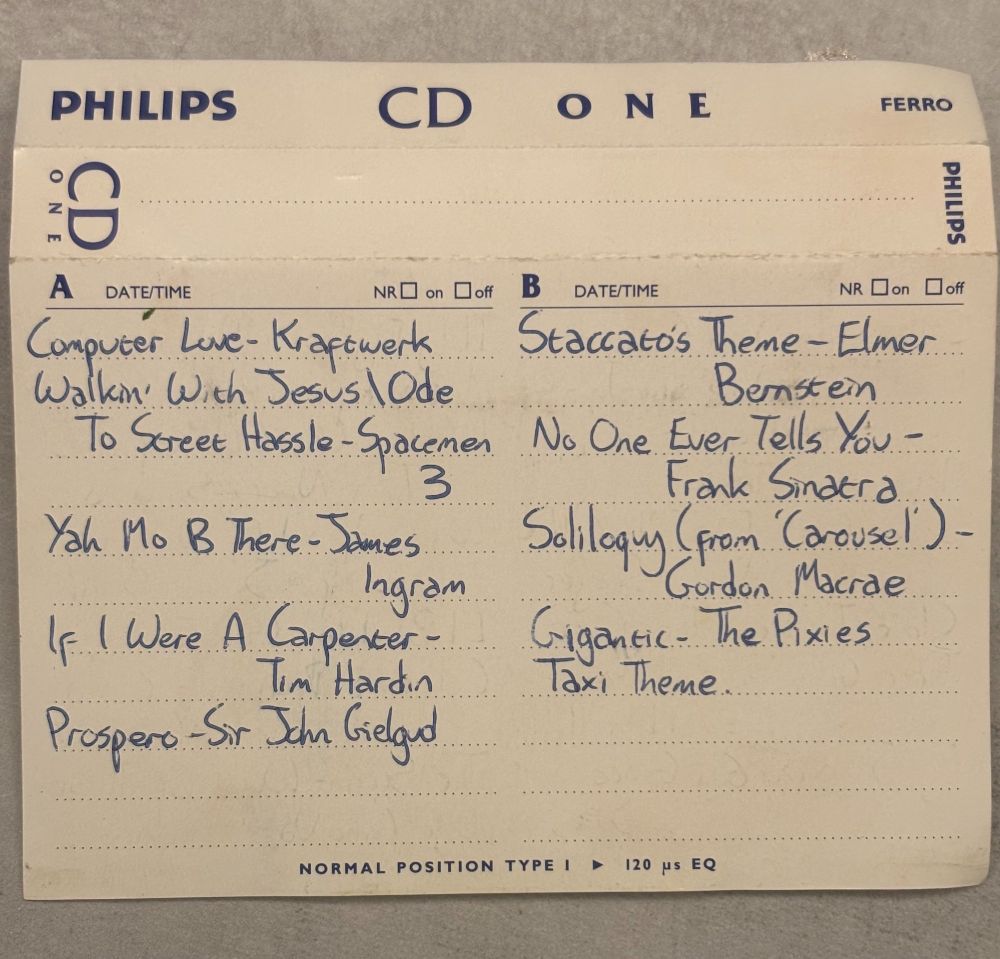 PHILIPS CD ONE FERRO
CD ONE PHILIPS
A DATE/TIME NR on off
Computer Love - Kraftwerk
Walkin' With Jesus \ Ode
To Street Hassle - Spacemen
3
Yah Mo B There - James
Ingram
If I Were A Carpenter -
Tim Hardin
Prospero - Sir John Gielgud
B DATE/TIME NR on off
Staccato's Theme - Elmer
Bernstein
No One Ever Tells You -
Frank Sinatra
Soliloquy (from 'Carousel') -
Gordon Macrae
Gigantic - The Pixies
Taxi Theme.
NORMAL POSITION TYPE I ▶ 120 µs EQ